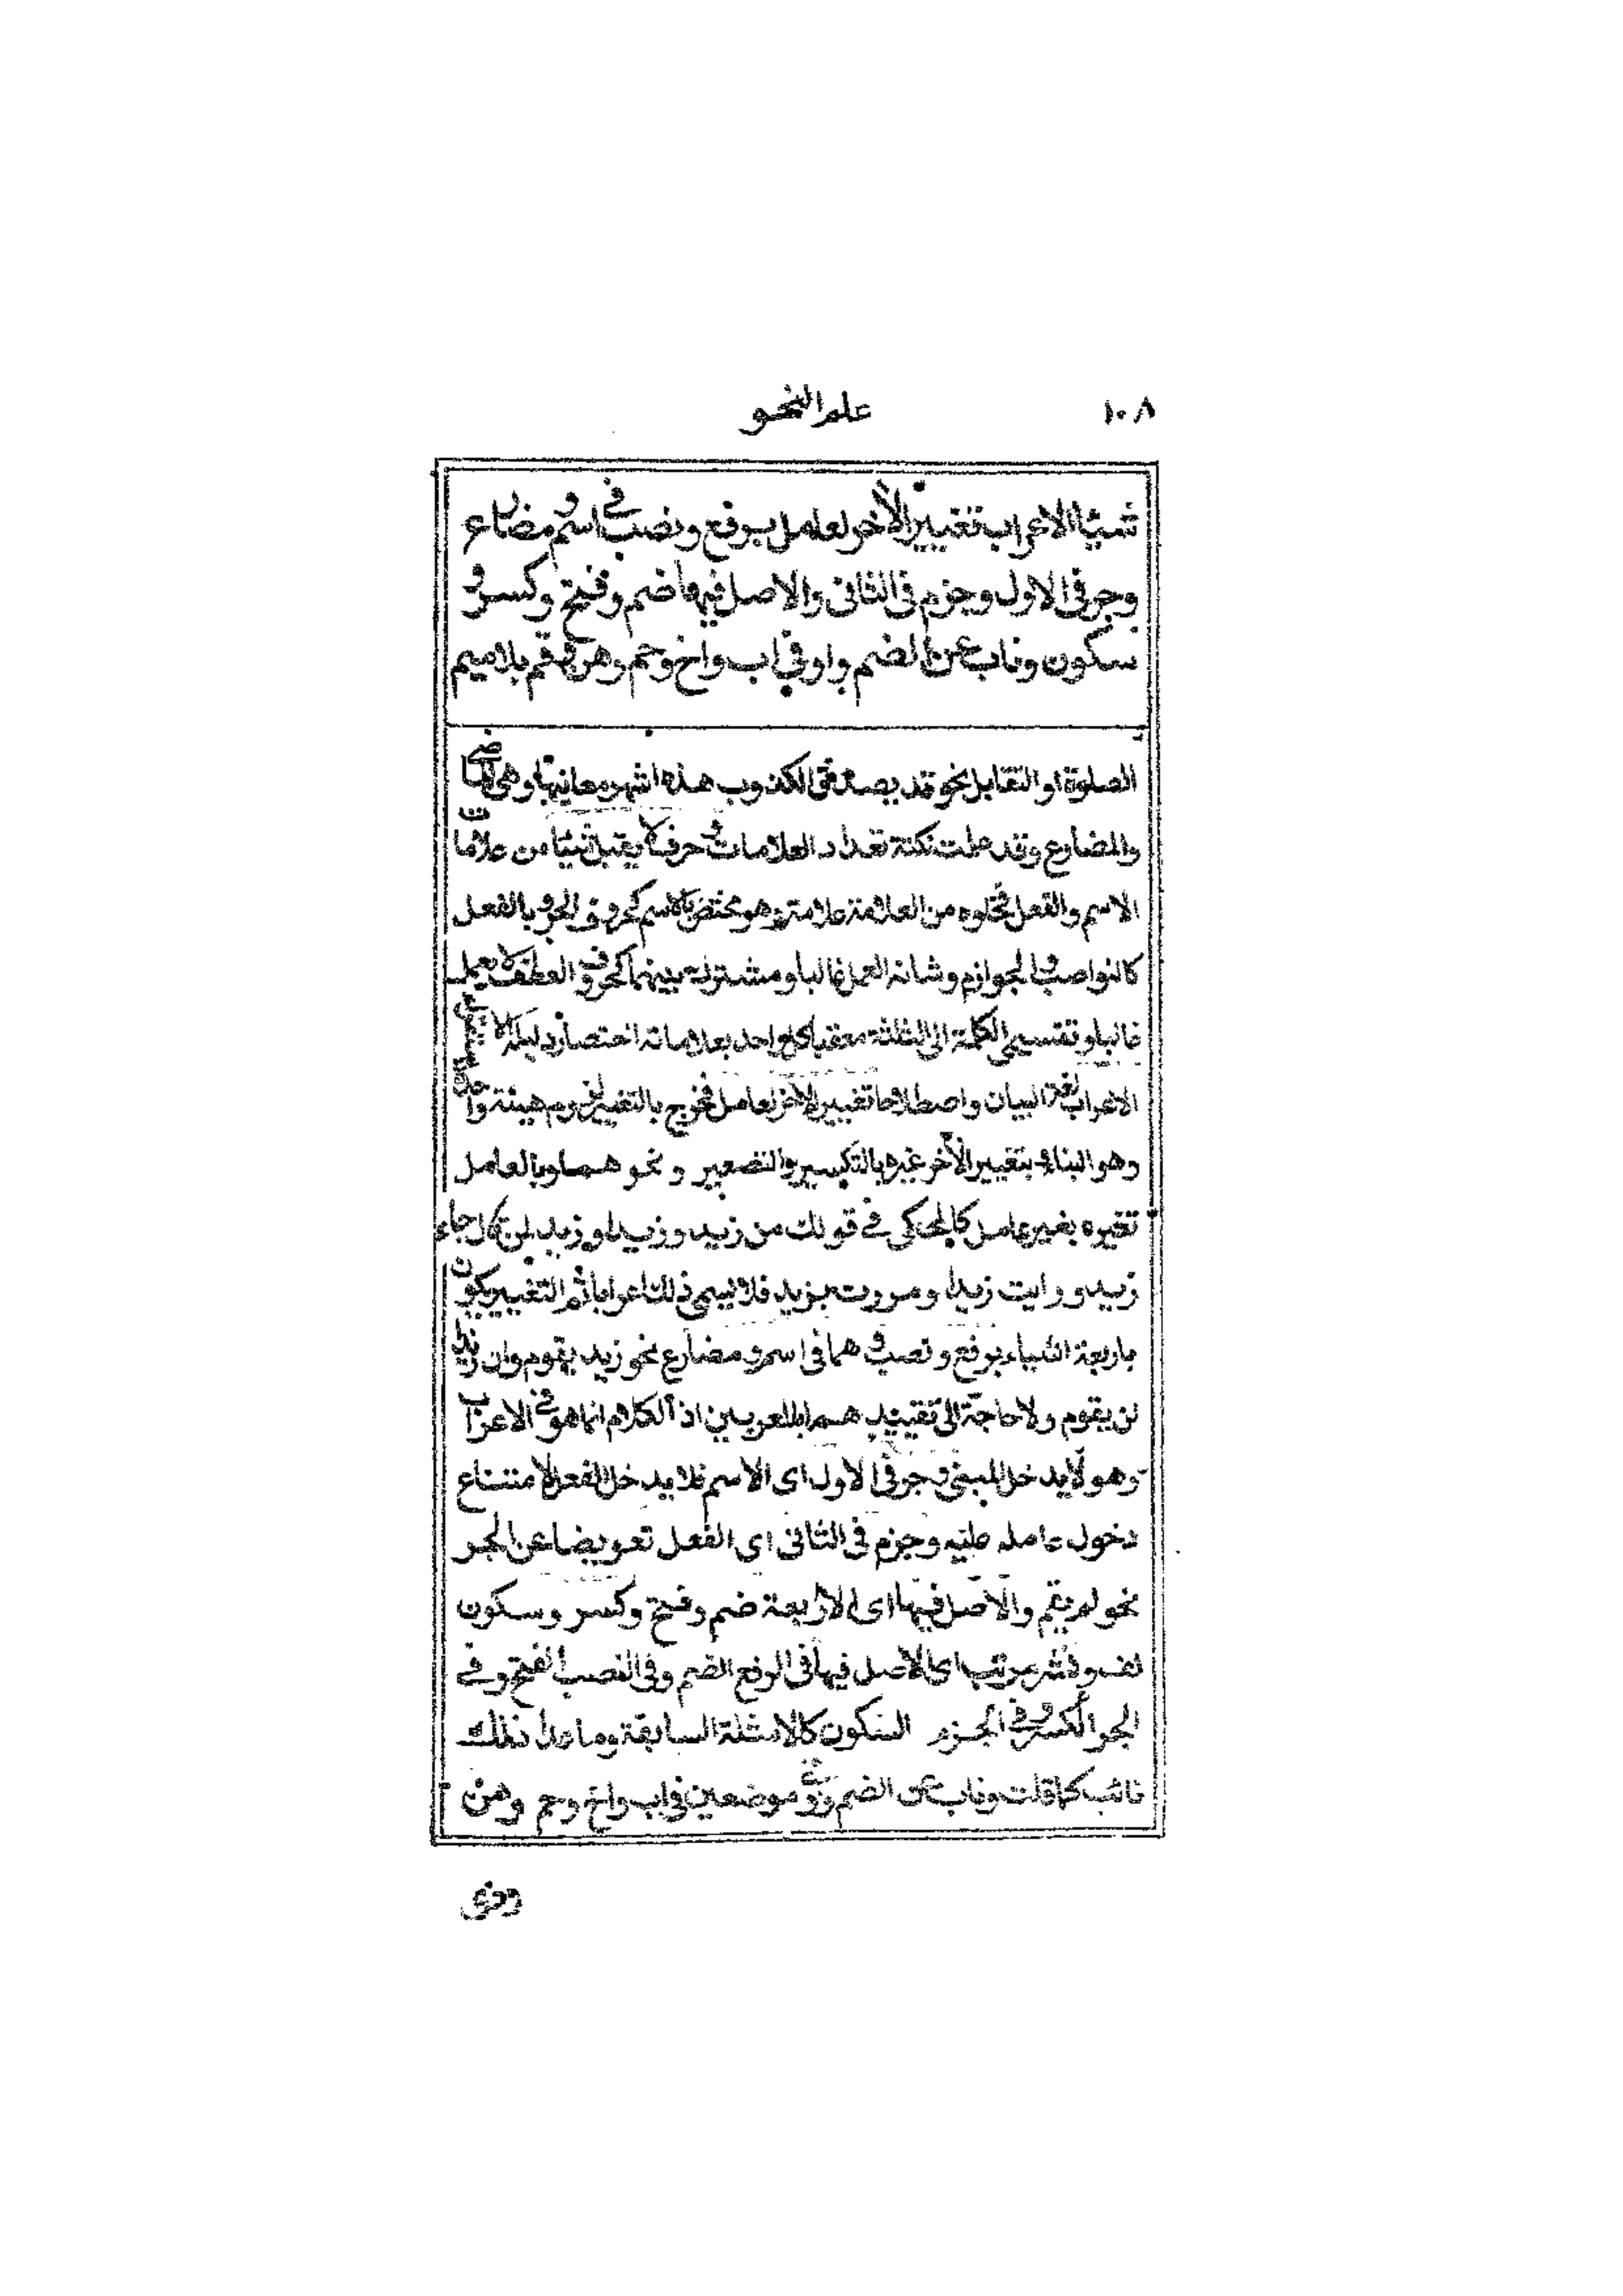 ١٠٨ علم النحو
شيئا الاعراب تغيير الآخر لعامل برفع ونصب في اسم ومضارع
وجر في الاول وجزم في الثاني والاصل فيها ضم وفتح وكسر و
سكون وناب عن الضم واو في اب واخ وحم وهن وفم بلا ميم
الصلوة او التقابل نحو قد يصدق الكذوب هذه اشهر معانيها وهي للماضي
والمضارع وقد علمت نكتة تعداد العلامات وحرف لا يقبل شيئا من علامات
الاسم والفعل فخلوه من العلامة علامة وهو مختص بالاسم كحروف الجر وبالفعل
كالنواصب والجوازم وشانه العمل غالبا ومشترك بينهما كحروف العطف ولا يعمل
غالبا وتقسيمي الكلمة الى الثلثة معقبا كل واحد بعلاماته اختصار
الاعراب لغة البيان واصطلاحا تغيير الآخر لعامل فخرج بالتغيير لزوم هيئة واحدة
وهو البناء وبتغيير الآخر غيره بالتكسير والتصغير ونحوهما وبالعامل
تغيره بغير عامل كالمحكي في قولك من زيد وزيدا وزيد لمن قال جاء
زيد ورايت زيدا ومررت بزيد فلا يسمى ذلك اعرابا ثم التغيير يكون
باربعة اشياء برفع ونصب وهما في اسم ومضارع نحو زيد يقوم وان زيدا
لن يقوم ولا حاجة الى تقييدهما بالمعربين اذ الكلام انما هو في الاعراب
وهو لا يدخل المبني وجر في الاول اى الاسم فلا يدخل الفعل لامتناع
دخول عامله عليه وجزم في الثاني اى الفعل تعويضا عن الجر
نحو لم يقم والاصل فيها اى الاربعة ضم وفتح وكسر وسكون
لف ونشر مرتب اى الاصل فيها في الرفع الضم وفي النصب الفتح وفي
الجر الكسر وفي الجزم السكون كالامثلة السابقة وما عدا ذلك
نائب كما قلت وناب عن الضم واو في موضعين في اب واخ وحم وهن